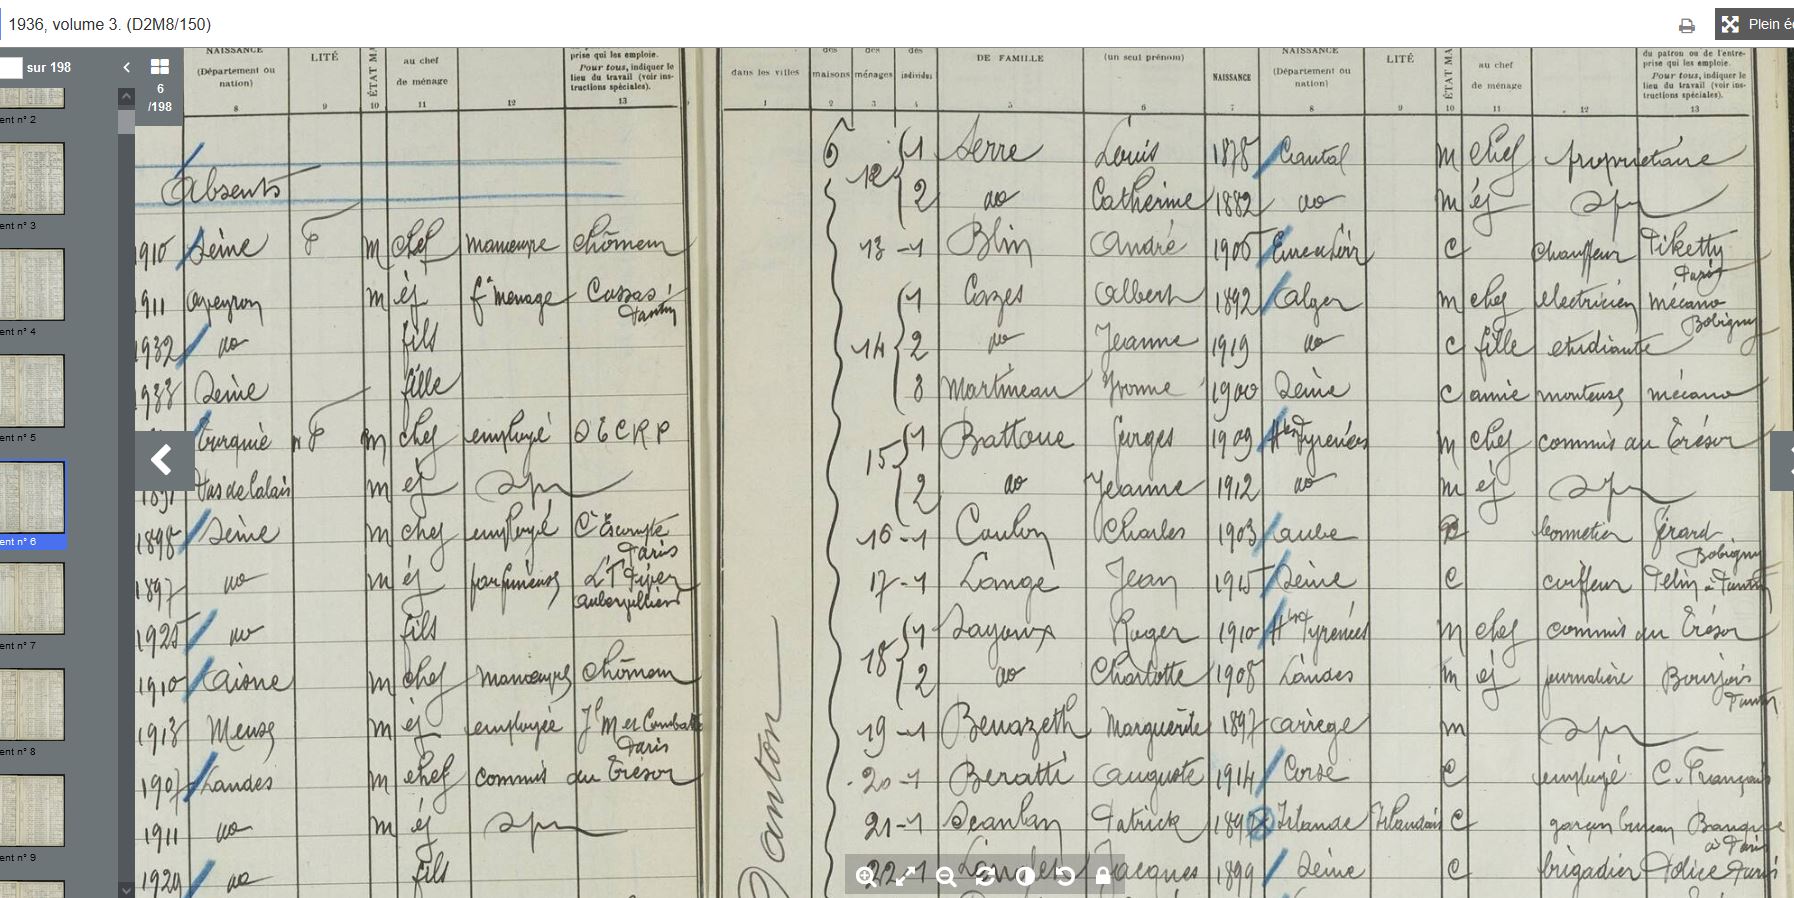 1936, volume 3. (D2M8/150)
Plein é
sur 198
6
/198
ent n° 2
ent n° 3
ent n° 4
ent n° 5
ent n° 6
ent n° 7
ent n° 8
ent n° 9
NAISSANCE
(Département ou
nation)
8
LITÉ
9
ÉTAT MA
10
au chef
de ménage
11
12
prise qui les emploie.
Pour tous, indiquer le
lieu du travail (voir ins-
tructions spéciales).
13
Absents
1910 Seine F m chef manœuvre chômeur
1911 Aveyron m ép fe menage Cassas
Pantin
1932 do fils
1933 Seine fille
Turquie F m chef employé S T C R P
Pas de Calais m ép sp
1898 Seine m chef employé Cr Escompte
Paris
1897 do m ép parfumeuse L T Piver
Aubervilliers
1925 do fils
1910 Aisne m chef manœuvre chômeur
1913 Meuse m ép employée
Paris
1907 Landes m chef commis du Trésor
1911 do m ép sp
1929 do fils
dans les villes
1
des
maisons
2
des
ménages
3
des
individus
4
DE FAMILLE
5
(un seul prénom)
6
NAISSANCE
7
NAISSANCE
(Département ou
nation)
8
LITÉ
9
ÉTAT MA
10
au chef
de ménage
11
12
du patron ou de l'entre-
prise qui les emploie.
Pour tous, indiquer le
lieu du travail (voir ins-
tructions spéciales).
13
Danton
6 12 1 Serre Louis 1878 Cantal m chef propriétaire
2 do Catherine 1882 do m ép sp
13 - 1 Blin André 1905 Eure et Loir C chauffeur Piketty
Paris
14 1 Cazes Albert 1892 Alger m chef electricien mécano
Bobigny
2 do Jeanne 1919 do C fille etudiante
3 Martineau Yvonne 1900 Seine C amie monteuse mécano
15 1 Battoue Gorges 1909 Htes Pyrenées m chef commis au Trésor
2 do Jeanne 1912 do m ép sp
16 - 1 Coulon Charles 1903 Aube bonnetier Gérard
Bobigny
17 - 1 Lange Jean 1915 Seine C coiffeur Pelin à Pantin
18 1 Sayoux Roger 1910 Htes Pyrénées m chef commis du Trésor
2 do Charlotte 1908 Landes m ép journalière Bourjois
Pantin
19 - 1 Benazeth Marguerite 1897 Ariege m sp
20 - 1 Beratti Auguste 1914 Corse C employé C. Français
21 - 1 Scanlan Patrick Irlande Irlandais C garçon bureau Banque
à Paris
22 - 1 Jacques 1899 Seine C brigadier Police Paris